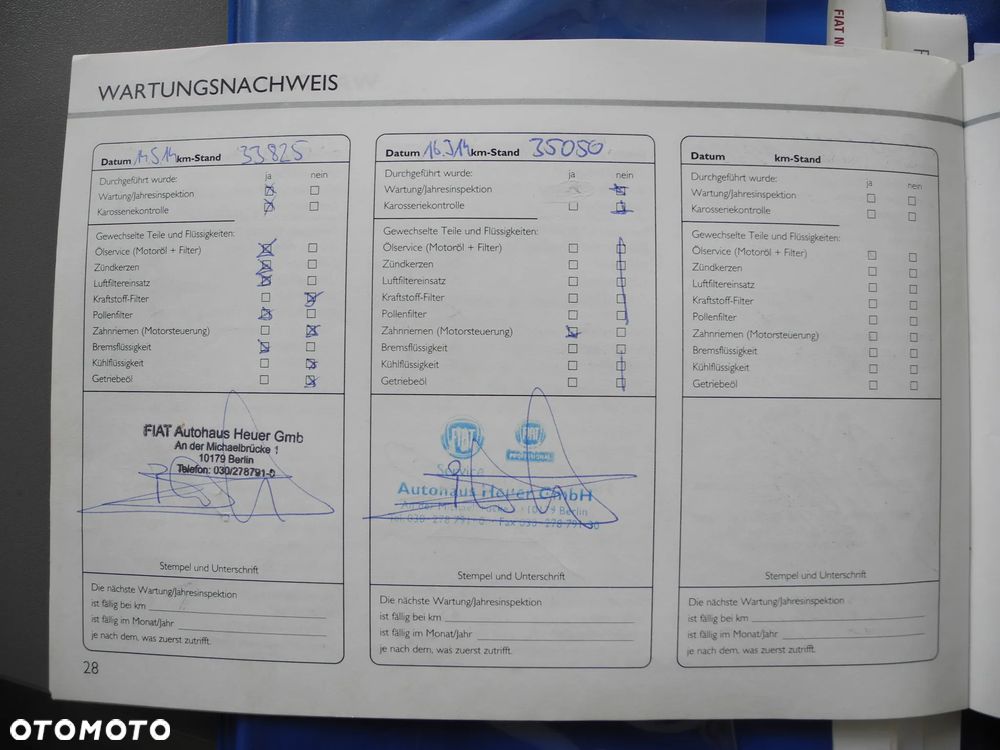 FIAT N
WARTUNGSNACHWEIS
Datum 14.5.14 km-Stand 33825
Durchgeführt wurde: ja nein
Wartung/Jahresinspektion
Karosseriekontrolle
Gewechselte Teile und Flüssigkeiten:
Ölservice (Motoröl + Filter)
Zündkerzen
Luftfiltereinsatz
Kraftstoff-Filter
Pollenfilter
Zahnriemen (Motorsteuerung)
Bremsflüssigkeit
Kühlflüssigkeit
Getriebeöl
FIAT Autohaus Heuer Gmb
An der Michaelbrücke 1
10179 Berlin
Telefon: 030/278791-0
Stempel und Unterschrift
Die nächste Wartung/Jahresinspektion
ist fällig bei km
ist fällig im Monat/Jahr
je nach dem, was zuerst zutrifft.
28
Datum 16.9.14 km-Stand 35050
Durchgeführt wurde: ja nein
Wartung/Jahresinspektion
Karosseriekontrolle
Gewechselte Teile und Flüssigkeiten:
Ölservice (Motoröl + Filter)
Zündkerzen
Luftfiltereinsatz
Kraftstoff-Filter
Pollenfilter
Zahnriemen (Motorsteuerung)
Bremsflüssigkeit
Kühlflüssigkeit
Getriebeöl
FIAT FIAT
PROFESSIONAL
Service
Autohaus Heuer GmbH
An der Michaelbrücke 1 · 10179 Berlin
Tel. 030 - 278 791 - 0 · Fax 030 - 278 791-30
Stempel und Unterschrift
Die nächste Wartung/Jahresinspektion
ist fällig bei km
ist fällig im Monat/Jahr
je nach dem, was zuerst zutrifft.
Datum km-Stand
Durchgeführt wurde: ja nein
Wartung/Jahresinspektion
Karosseriekontrolle
Gewechselte Teile und Flüssigkeiten:
Ölservice (Motoröl + Filter)
Zündkerzen
Luftfiltereinsatz
Kraftstoff-Filter
Pollenfilter
Zahnriemen (Motorsteuerung)
Bremsflüssigkeit
Kühlflüssigkeit
Getriebeöl
Stempel und Unterschrift
Die nächste Wartung/Jahresinspektion
ist fällig bei km
ist fällig im Monat/Jahr
je nach dem, was zuerst zutrifft.
OTOMOTO